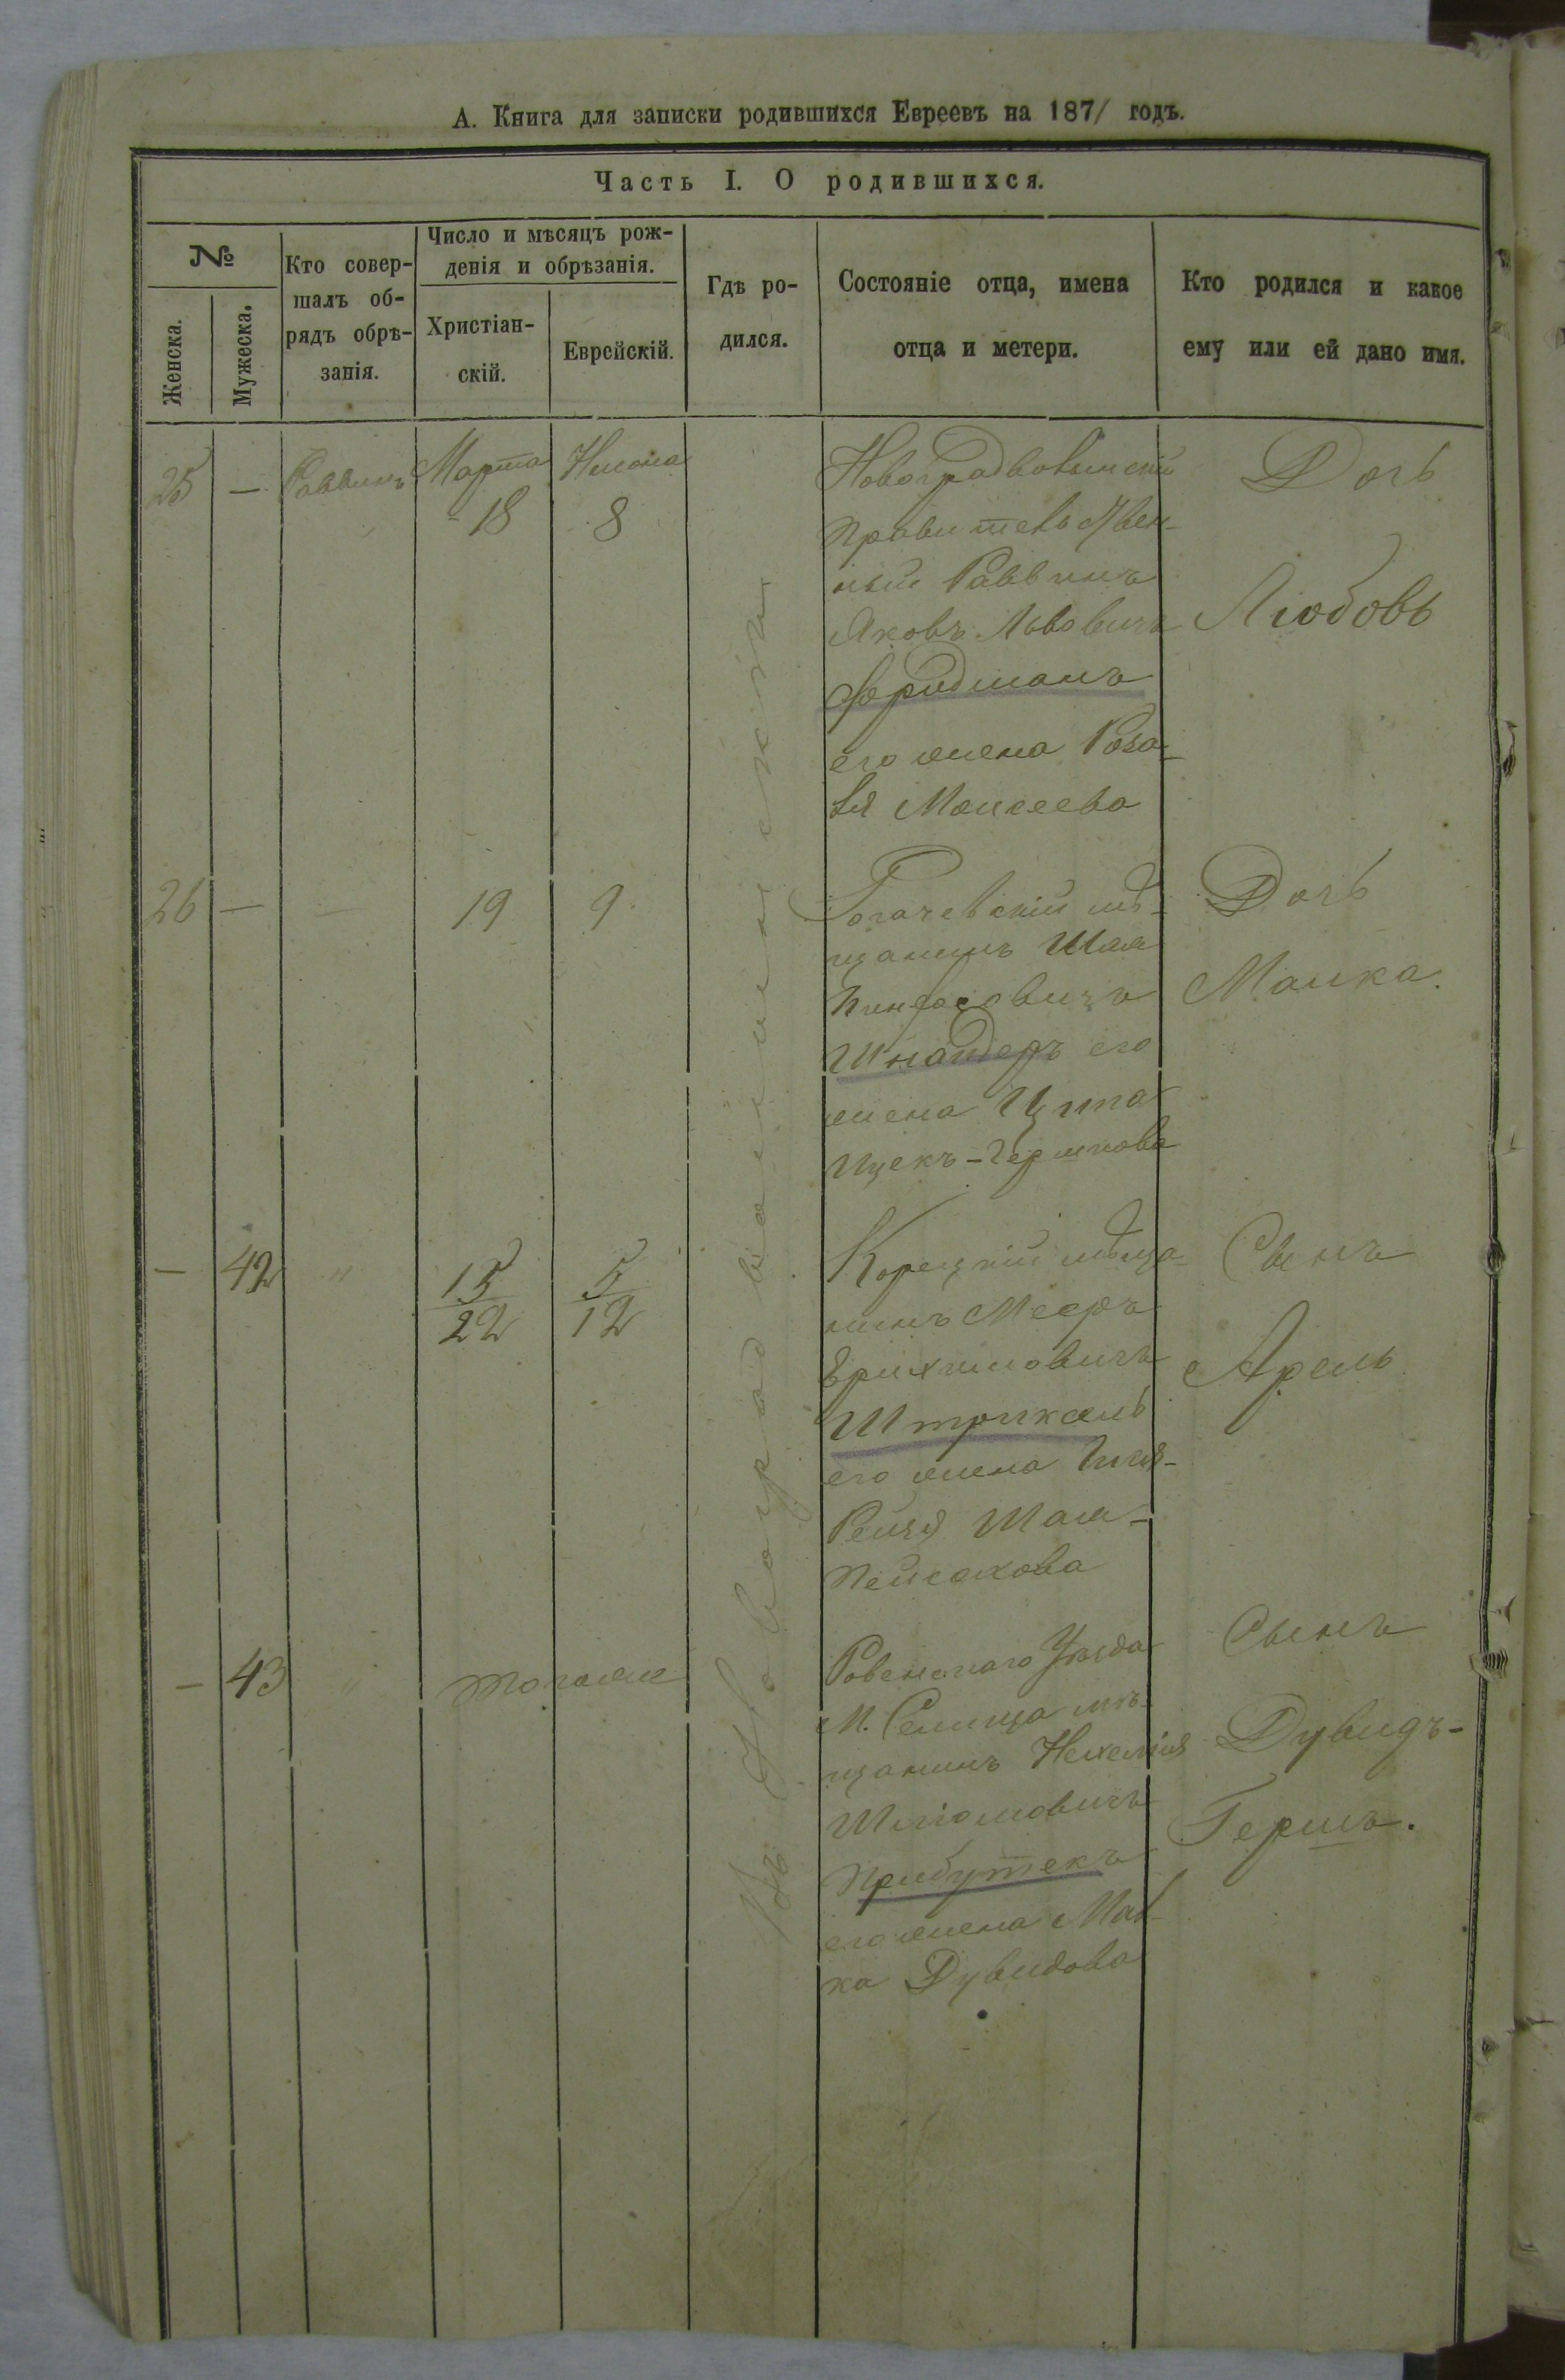 А. Книга для записки родившихся Евреевъ на 1871 годъ.
Часть I. О родившихся.
№
Женска.
Мужеска.
Кто совер-
шалъ об-
рядъ обрѣ-
занія.
Число и мѣсяцъ рож-
денія и обрѣзанія.
Христіан-
скій.
Еврейскій.
Гдѣ ро-
дился.
Состояніе отца, имена
отца и метери.
Кто родился и какое
ему или ей дано имя.
Въ Новоградволынскѣ
25 — Раввинъ Марта Нисона
18 8
Новоградволынскій
Правительствен-
ный Раввинъ
Яковъ Львовичъ
Фридманъ
его жена Роза-
лія Моисеева
Дочь
Любовь
26 — — 19 9
Рогачевскій мѣ-
щанинъ Шая
Пинхасовичъ
Шнайдеръ его
жена Ципа
Ицекъ-Гершкова
Дочь
Малка.
— 42 " 15 5
22 12
Корецкій мѣща-
нинъ Мееръ
Штрикель
его жена
Рейзя Шая-
Пейсахова
Сынъ
Арель
— 43 " тогоже
Ровенскаго Уѣзда
М. Селища мѣ-
щанинъ Нехемія
Шліомовичъ
Прибутекъ
его жена Мал-
ка Дувидова
Сынъ
Дувидъ-
Гершъ.